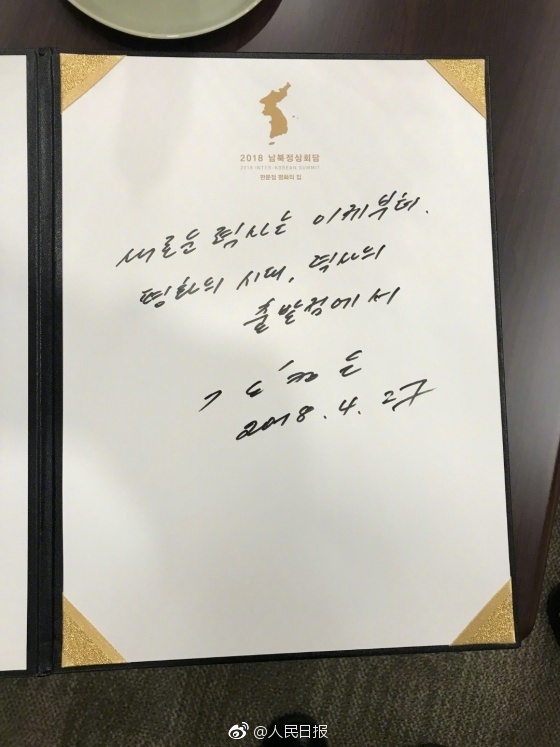 2018 남북정상회담
2018 INTER-KOREAN SUMMIT
판문점 평화의 집
새로운 력사는 이제부터.
평화의 시대, 력사의
출발점에서
김정은
2018.4.27
@人民日报